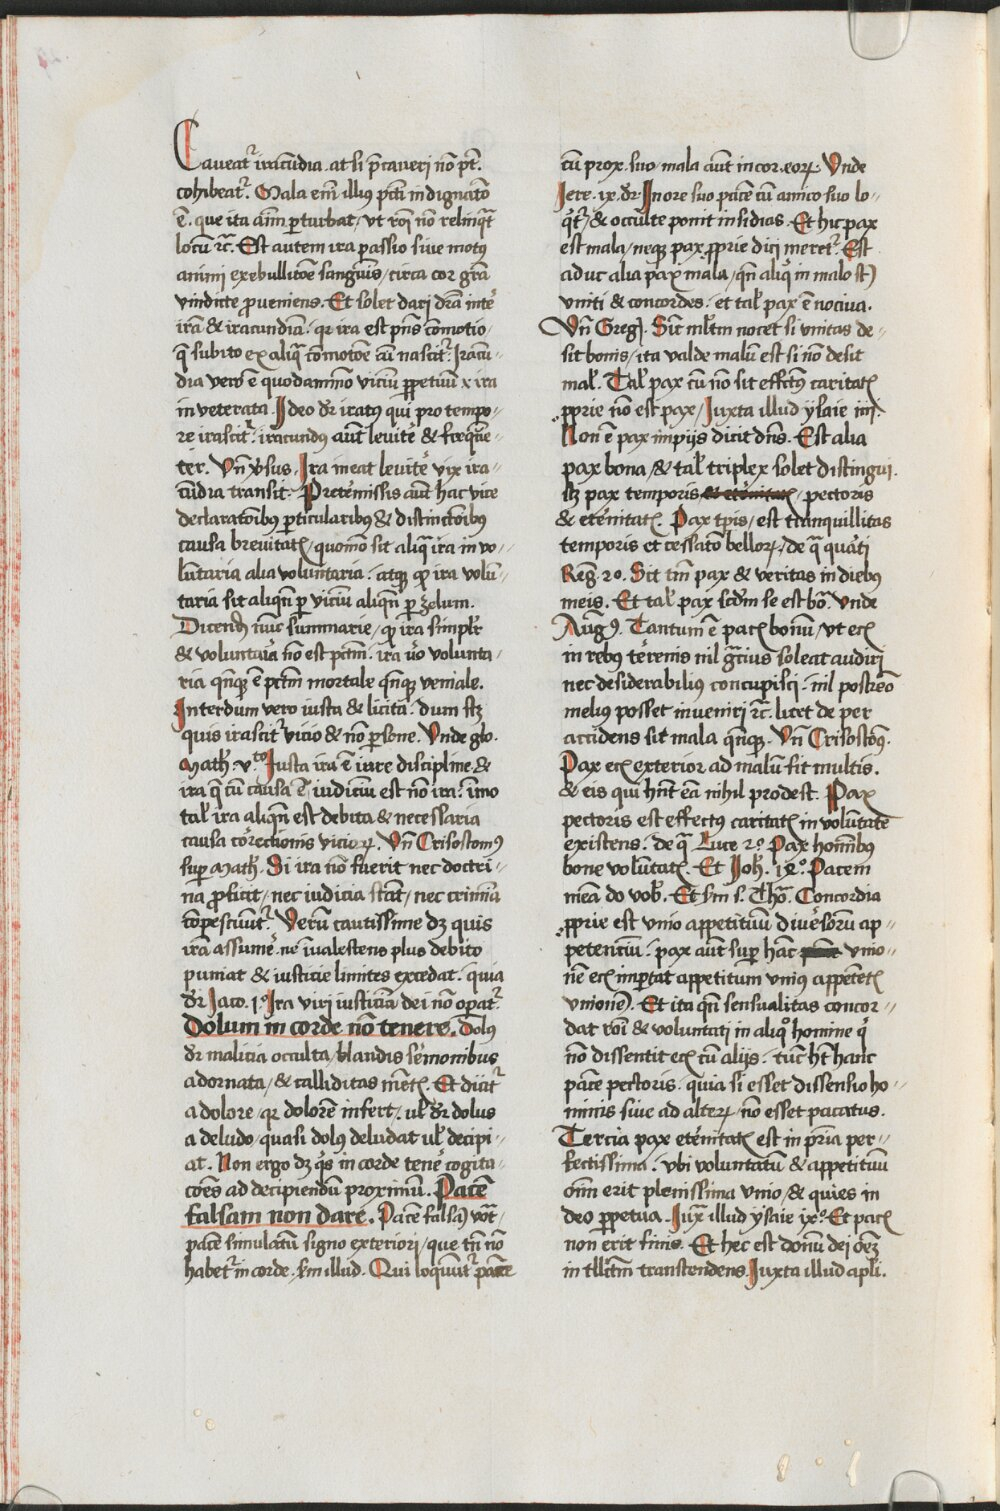 Caueat᷑ iracūdia. at si p̄caueri nō pōt.
cohibeat᷑. Mala em̄ illiꝰ pcti indignatō
ē. que ita aīm ꝑturbat / vt rōi nō relinq̄t
locū ꝛc̄. Est autem ira passio siue motꝰ
animi ex ebullitōe sanguīs / circa cor gr̄a
vindicte ꝓueniens. Et solet dari dr̄a int̄
irā & iracundiā. qꝛ ira est p̄ns cōmotio /
q̄ subito ex aliq̄ cōmotōe aīi nascit᷑. Iracū-
dia vero ē quodāmmō viciū ꝑpetuū ⁊ ira
inueterata. Ideo dr̄ iratꝰ qui pro tempo-
re irascit᷑. iracundꝰ aūt leuit̄ & freq̄n-
ter. Vn̄ v̄sus. Ira meat leuit̄ vix ira-
cūdia transit. Pret̄missis aūt hac vice
declaratōibus ꝑticularibus & distinctōibus
causa breuitatꝭ / quomō sit aliq̄ ira in vo-
lūtaria alia voluntaria. atqꝫ ꝙ ira volū-
taria sit aliqn̄ ꝑ viciū aliqn̄ ꝑ zelum.
Dicend̄ nūc summarie / ꝙ ira simplr̄
& voluntaria nō est pctm̄. ira v̄o volunta-
ria qn̄qꝫ ē pctm̄ mortale qn̄qꝫ veniale.
Interdum vero iusta & licita. dum scꝫ
quis irascit᷑ vicio & nō ꝑsone. Vnde glo.
Math. v.to Iusta ira ē mr̄e discipline &
ira q̄ cū causa ē / iudiciū est nō ira. īmo
tal̓ ira aliqn̄ est debita & necessaria
causa correctionis vicioꝝ. Vn̄ Crisostomꝰ
suꝑ Math̓. Si ira nō fuerit nec doctri-
na ꝓficit / nec iudicia stāt / nec crimīa
cōpescunt᷑. Verū cautissime dꝫ quis
irā assume᷑. ne īualescens plus debito
puniat & iusticie limites excedat. quia
dr̄ Jaco. 1º Ira viri iusticiā dei nō oꝑat᷑.
Dolum in corde nō tenere. Dolꝰ
dr̄ malicia occulta / blandis sermonibus
adornata / & calliditas mētꝭ. Et dicit᷑
a dolore / qꝛ dolorē infert / ul̓ dr̄ dolus
a deludo / quasi dolꝰ deludat ul̓ decipi-
at. Non ergo dꝫ q̄s in corde tene᷑ cogita-
cōes ad decipiendū proximū. Pacē
falsam non dare. Pacē falsā vōt
pacē simulatā signo exteriori / que tn̄ nō
habet᷑ in corde. s̄m illud. Qui loqūnt᷑ pacē
cū prox. suo / mala aūt in cor. eoꝝ. Vnde
Jere. ix. dr̄. In ore suo pacē cū amico suo lo-
q̄t᷑ / & occulte ponit insidias. Et hic pax
est mala / neqꝫ pax ꝓprie dici meret᷑. Est
aduc alia pax mala / qn̄ aliq̄ in malo st̄
vniti & concordes. et tal̓ pax ē nociua.
Vn̄ Greg̓. Sic̄ ml̓tm nocet si vnitas de-
sit bonis / ita valde malū est si nō desit
mal̓. Tal̓ pax cū nō sit effectꝰ caritatꝭ
ꝓprie nō est pax / Juxta illud ysaie iiij.
Non ē pax impijs dicit dn̄s. Est alia
pax bona / & tal̓ triplex solet distingui.
scꝫ pax temporis / pectoris
& eternitatꝭ. Pax tp̄is / est tranquillitas
temporis et cessatō belloꝝ / de q̄
Reg̓. 20. Sit tm̄ pax & veritas in diebꝰ
meis. Et tal̓ pax scd̓m se est bō. Vnde
Aug̓ꝰ. Tantum ē pacꝭ bonū / vt ecꝭ
in rebꝰ terrenis nil gr̄cius soleat audiri
nec desiderabiliꝰ concupisci. nil postrēo
meliꝰ posset inueniri ꝛc̄. licet de per
accidens sit mala qn̄qꝫ. Vn̄ Crisostōꝰ.
Pax ecꝭ exterior ad malū fit multis.
& eis qui hn̄t eā nihil prodest. Pax
pectoris est effectꝰ caritatꝭ in volūtate
existens. de q̄ Luce 2º. Pax homībus
bone volūtatꝭ. Et Joh̓. 14º. Pacem
meā do vob̓. Et s̄m s. Tho. Concordia
ꝓprie est vnio appetituū diuersoru ap-
petentiū. pax aūt suꝑ hāc vnio-
nē ecꝭ īmportat appetitum vniꝰ appetētꝭ
vnionē. Et ita qn̄ sensualitas concor-
dat rōi & voluntati in aliq̊ homine q̊
nō dissentit ecꝭ cū alijs. tūc h̄t hanc
pacē pectoris. quia si esset dissensio ho-
minis siue ad alteꝝ / nō esset pacatus.
Tercia pax eternitatꝭ est in pr̄ia per-
fectissima. vbi voluntatū & appetituū
oīm erit plenissima vnio / & quies in
deo ꝑpetua. Iux̄ illud ysaie ixº. Et pacꝭ
non erit finis. Et hec est donū dei oēꝫ
intll̓ctm transcendens. Juxta illud apl̓i.